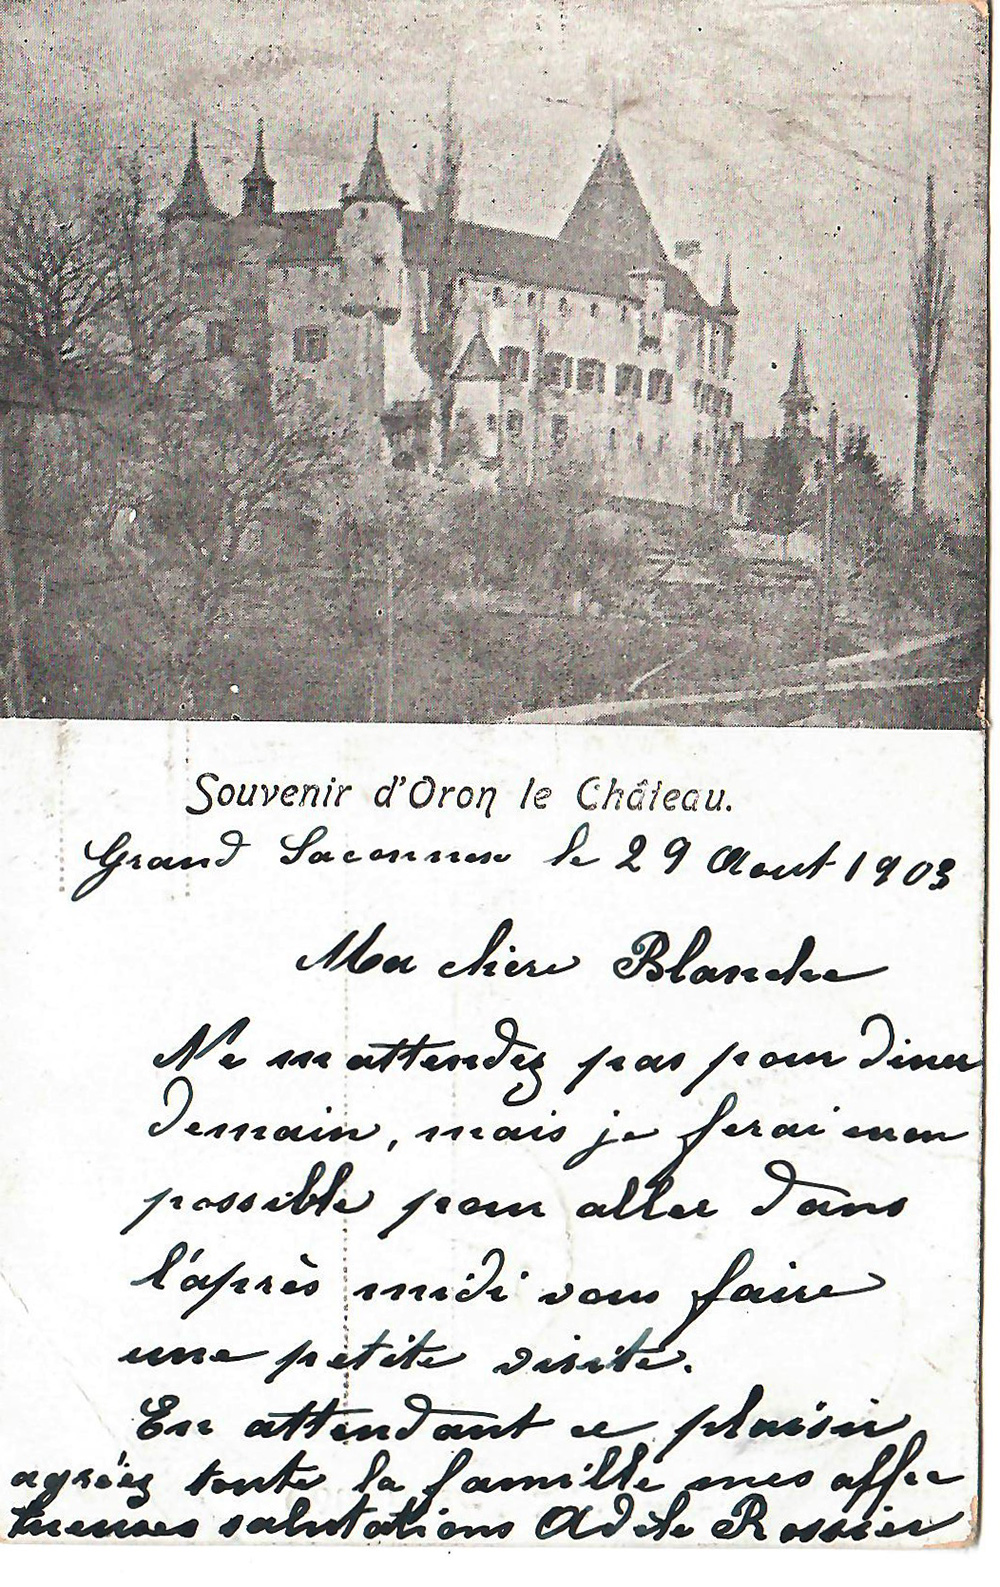 Souvenir d'Oron le Château.
Grand Saconnex le 29 Aout 1903
Ma chère Blanche
Ne m'attendez pas pour diner
demain, mais je ferai mon
possible pour aller dans
l'après midi vous faire
une petite visite.
En attendant ce plaisir
agréez toute la famille mes affec
tueuses salutations Adèle Rossier